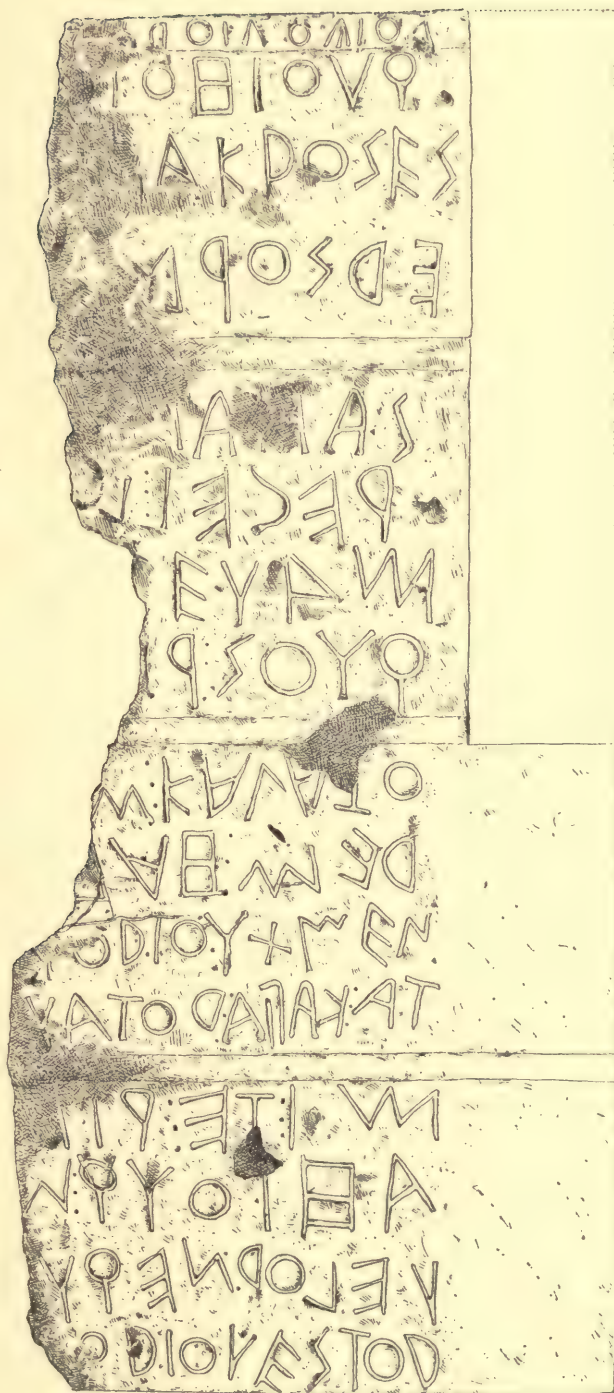 QVOIHOI
AKROSES
EDSOR
IAIAS
RECEI : I
EVAM
QVOS : R
M : KALATO
REM : HAB
TOD : IOVXMEN
TA : KAPIAD : OTAV
M : ITE : RI
M : QVOI HA
VELOD : NEQV
OD : IOVESTOD